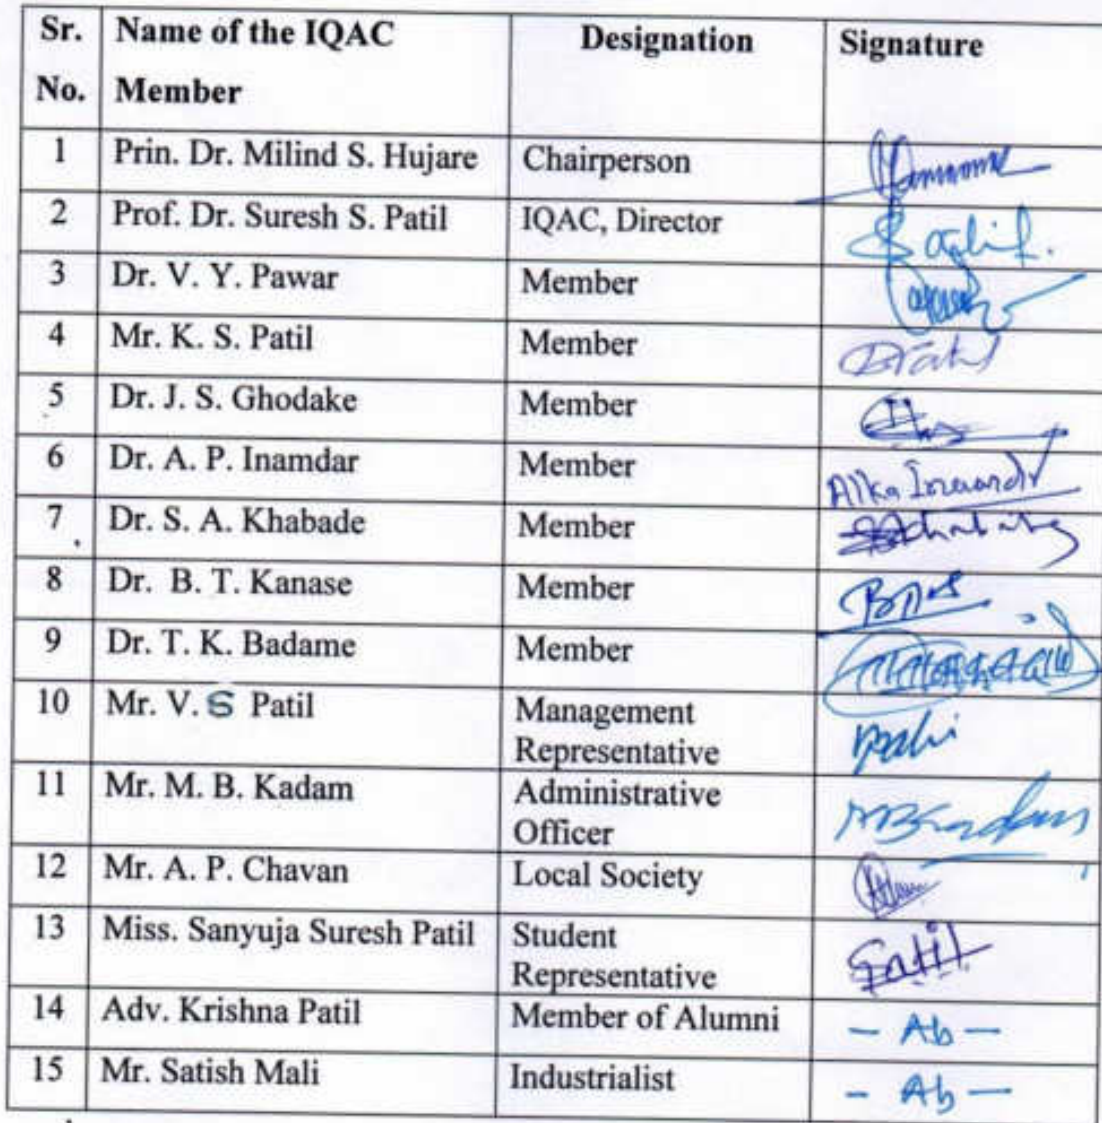 Sr. Name of the IQAC Designation Signature
No. Member
1 Prin. Dr. Milind S. Hujare Chairperson
2 Prof. Dr. Suresh S. Patil IQAC, Director
3 Dr. V. Y. Pawar Member
4 Mr. K. S. Patil Member
5 Dr. J. S. Ghodake Member
6 Dr. A. P. Inamdar Member Alka Inamdar
7 Dr. S. A. Khabade Member
8 Dr. B. T. Kanase Member
9 Dr. T. K. Badame Member
10 Mr. V. S Patil Management
Representative
11 Mr. M. B. Kadam Administrative
Officer
12 Mr. A. P. Chavan Local Society
13 Miss. Sanyuja Suresh Patil Student
Representative
14 Adv. Krishna Patil Member of Alumni – Ab –
15 Mr. Satish Mali Industrialist – Ab –